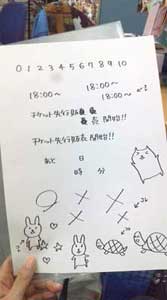 0 1 2 3 4 5 6 7 8 9 10
18:00〜 18:00〜
チケット先行販
売 開始!!
チケット先行販売 開始!!
あと 日
時 分
○ × ×
× ×